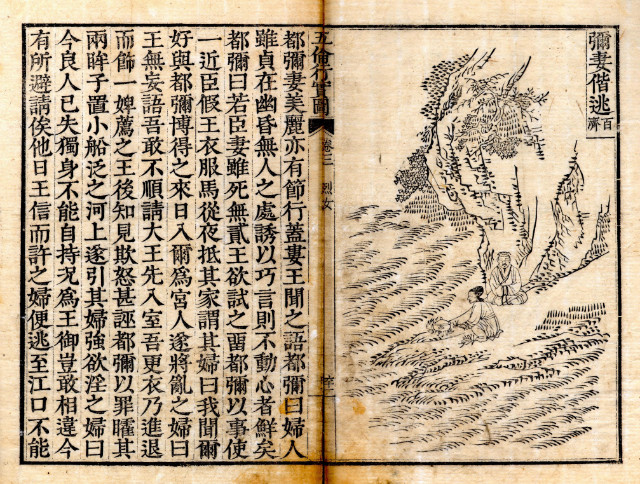 彌妻偕逃
百濟
五倫行實圖
卷三 烈女
都彌妻美麗亦有節行蓋婁王聞之語都彌曰婦人
雖貞在幽昏無人之處誘以巧言則不動心者鮮矣
都彌曰若臣妻雖死無貳王欲試之畱都彌以事使
一近臣假王衣服馬從夜抵其家謂其婦曰我聞爾
好與都彌博得之來日入爾爲宮人遂將亂之婦曰
王無妄語吾敢不順請大王先入室吾更衣乃進退
而飾一婢薦之王後知見欺怒甚誣都彌以罪矐其
兩眸子置小船泛之河上遂引其婦強欲淫之婦曰
今良人已失獨身不能自持况爲王御豈敢相違今
有所避請俟他日王信而許之婦便逃至江口不能